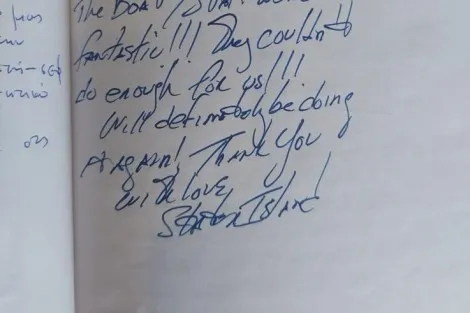 The BOAT / STAFF were
fantastic!!! They couldn't
do enough for us!!!
Will definately be doing
AGAIN! Thank You
with love,
Staten Island!